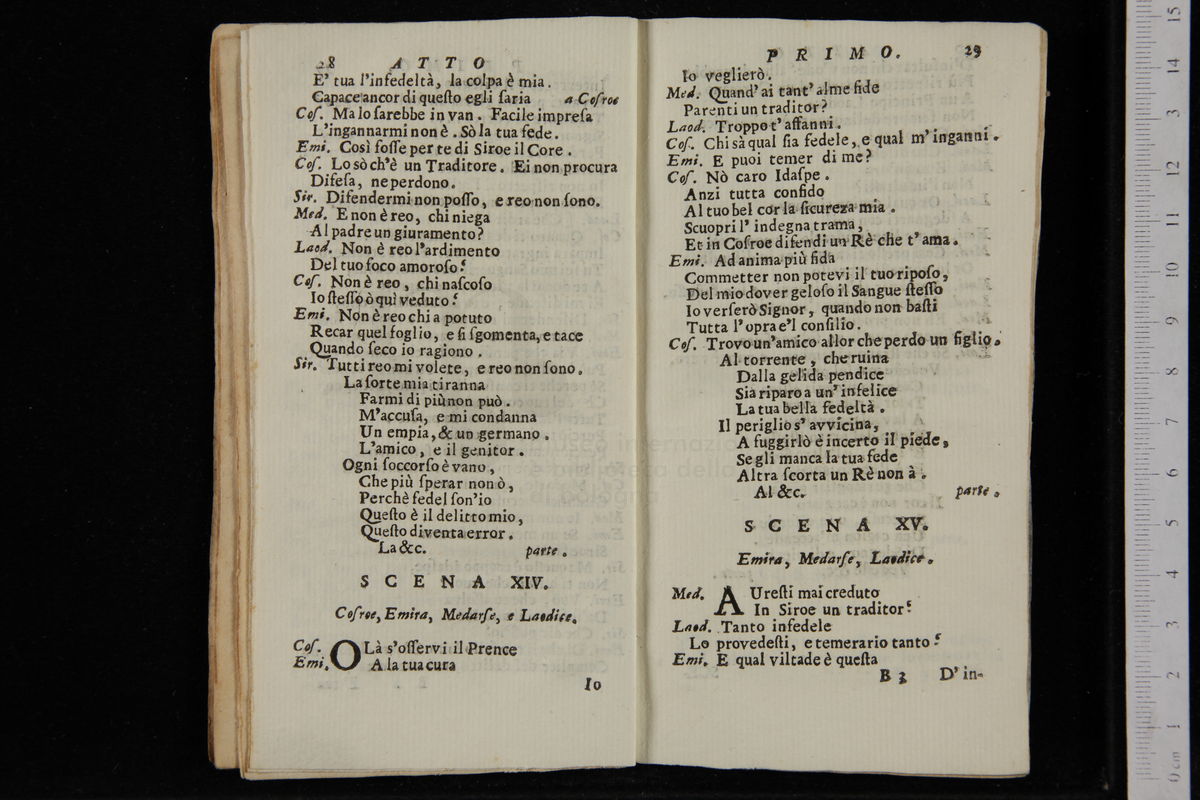 28 ATTO
E' tua l'infedeltà, la colpa è mia.
Capace ancor di queſto egli ſaria a Coſroe
Coſ. Ma lo ſarebbe in van. Facile impreſa
L'ingannarmi non è. Sò la tua fede.
Emi. Così foſſe per te di Siroe il Core.
Coſ. Lo sò ch'è un Traditore. Ei non procura
Difeſa, ne perdono.
Sir. Difendermi non poſſo, e reo non ſono.
Med. E non è reo, chi niega
Al padre un giuramento?
Laod. Non è reo l'ardimento
Del tuo foco amoroſo?
Coſ. Non è reo, chi naſcoſo
Io ſteſſo ò quì veduto?
Emi. Non è reo chi a potuto
Recar quel foglio, e ſi ſgomenta, e tace
Quando ſeco io ragiono.
Sir. Tutti reo mi volete, e reo non ſono.
La ſorte mia tiranna
Farmi di più non può.
M'accuſa, e mi condanna
Un empia, & un germano.
L'amico, e il genitor.
Ogni ſoccorſo è vano,
Che più ſperar non ò,
Perchè fedel ſon'io
Queſto è il delitto mio,
Queſto diventa error.
La &c. parte.
SCENA XIV.
Coſroe, Emira, Medarſe, e Laodice.
Coſ. OLà s'oſſervi il Prence
Emi. A la tua cura
Io
PRIMO. 29
Io veglierò.
Med. Quand'ai tant'alme fide
Parenti un traditor?
Laod. Troppo t'affanni.
Coſ. Chi sà qual ſia fedele, e qual m'inganni.
Emi. E puoi temer di me?
Coſ. Nò caro Idaſpe.
Anzi tutta confido
Al tuo bel cor la ſicureza mia.
Scuopri l'indegna trama,
Et in Coſroe difendi un Rè che t'ama.
Emi. Ad anima più fida
Commetter non potevi il tuo ripoſo,
Del mio dover geloſo il Sangue ſteſſo
Io verſerò Signor, quando non baſti
Tutta l'opra e'l conſilio.
Coſ. Trovo un'amico allor che perdo un figlio.
Al torrente, che ruina
Dalla gelida pendice
Sia riparo a un'infelice
La tua bella fedeltà.
Il periglio s'avvicina,
A fuggirlò è incerto il piede,
Se gli manca la tua fede
Altra ſcorta un Rè non à.
Al &c. parte.
SCENA XV.
Emira, Medarſe, Laodice.
Med. AUreſti mai creduto
In Siroe un traditor?
Laod. Tanto infedele
Lo provedeſti, e temerario tanto?
Emi. E qual viltade è queſta
B 3 D'in-